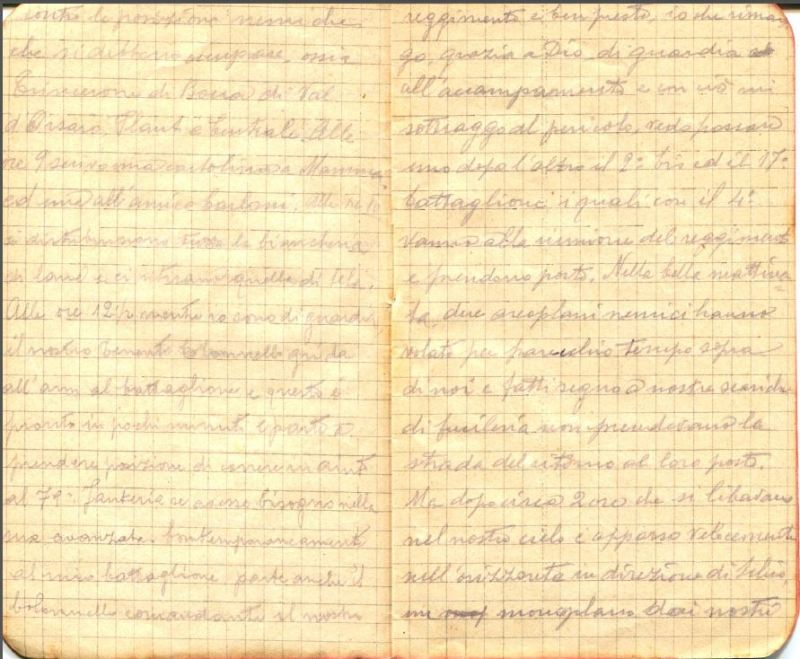 contro le posizioni nemiche
che si debbono occupare, ossia
Trincerone di Bocca di Val
d'Orsaro, Plaut e Centrale. Alle
ore 9 scrivo una cartolina a Mamma
ed una all'amico Carloni. Alle ore
si distribuiscono la biancheria
di lana e ci ritirano quella di tela.
Alle ore 12½ mentre io sono di guardia
il nostro Tenente Colonnello grida
all'armi al battaglione e questo è
pronto in pochi minuti e parte a
prendere posizione di
al 7° Fanteria se avesse bisogno nella
sua avanzata. Contemporaneamente
al mio battaglione, parte anche il
Colonnello comandante il nostro
reggimento e ben presto, io che riman
go, grazia a Dio, di guardia
all'accampamento e con ciò mi
sottraggo al pericolo, vedo passare
uno dopo l'altro il 2° bis ed il 17°
battaglione i quali con il 4°
vanno alla riunione del reggimento
e prendono posto. Nella bella mattina
ta, due areoplani nemici hanno
volato per parecchio tempo sopra
di noi e fatti segno a nostre scariche
di fucileria non prendevano la
strada del ritorno al loro posto.
Ma dopo circa 2 ore che si libravano
nel nostro cielo è apparso velocemente
nell'orizzonte in direzione di
un monoplano dei nostri